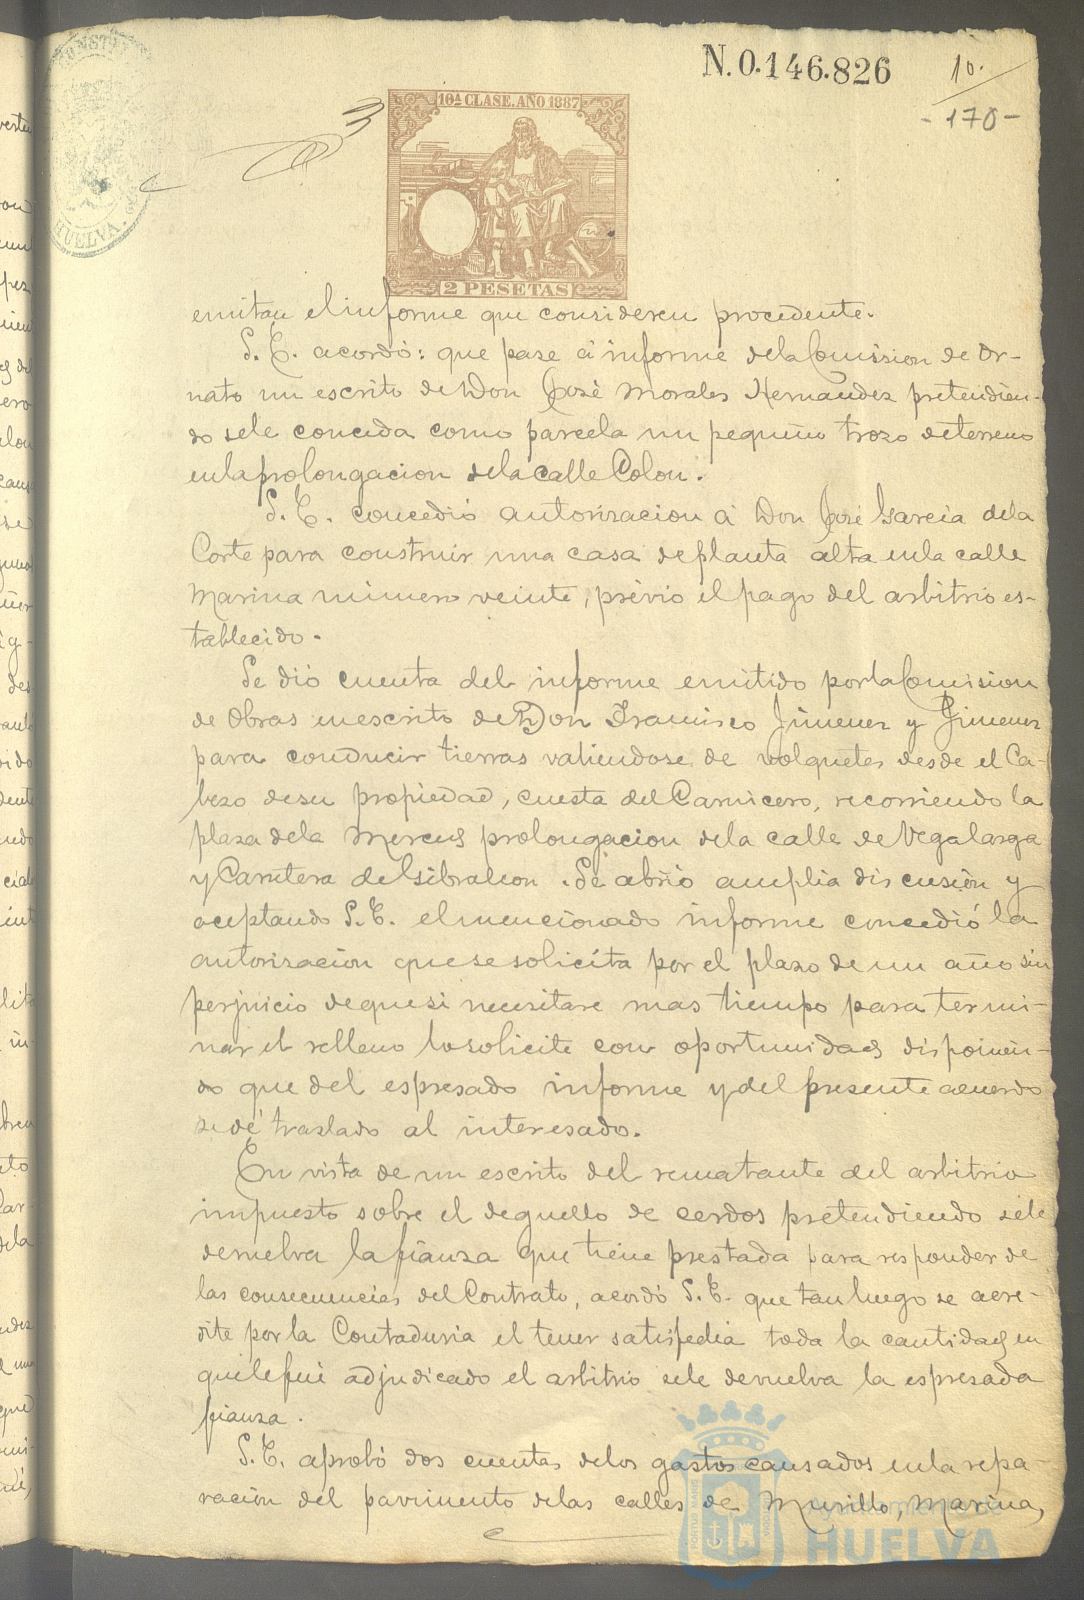 N.0.146.826
10.
- 170 -
CONSTIT
HUELVA.
10ª CLASE. AÑO 1887
2 PESETAS
emitan el informe que consideren procedente.
S. E. acordó: que pase á informe de la Comision de Or-
nato un escrito de Don José Morales Hernandez pretendien-
do se le conceda como parcela un pequeño trozo de terreno
en la prolongacion de la calle Colon.
S. E. concedió autorizacion á Don José Garcia de la
Corte para construir una casa de planta alta en la calle
Marina número veinte, prévio el pago del arbitrio es-
tablecido.
Se dió cuenta del informe emitido por la Comision
de Obras en escrito de Don Francisco Jimenez y Jimenez
para conducir tierras valiendose de volquetes desde el Ca-
bezo de su propiedad, cuesta del Carnicero, recorriendo la
plaza de la Merced, prolongacion de la calle de Vegalarga
y Carretera de Gibraleon. Se abrió amplia discusión y
aceptando S. E. el mencionado informe concedió la
autorizacion que se solicíta por el plazo de un año sin
perjuicio de que si necesitare mas tiempo para termi-
nar el relleno lo solicite con oportunidad disponien-
do que del espresado informe y del presente acuerdo
se dé traslado al interesado.
En vista de un escrito del rematante del arbitrio
impuesto sobre el deguello de cerdos pretendiendo se le
devuelva la fianza que tiene prestada para responder de
las consecuencias del Contrato, acordó S. E. que tan luego se acre-
dite por la Contaduria el tener satisfecha toda la cantidad en
que le fué adjudicado el arbitrio se le devuelva la espresada
fianza.
S. E. aprobó dos cuentas de los gastos causados en la repa-
racion del pavimento de las calles de Murillo, Marina,
PORTUS MARIS
CUSTODIA
Ayuntamiento de
HUELVA